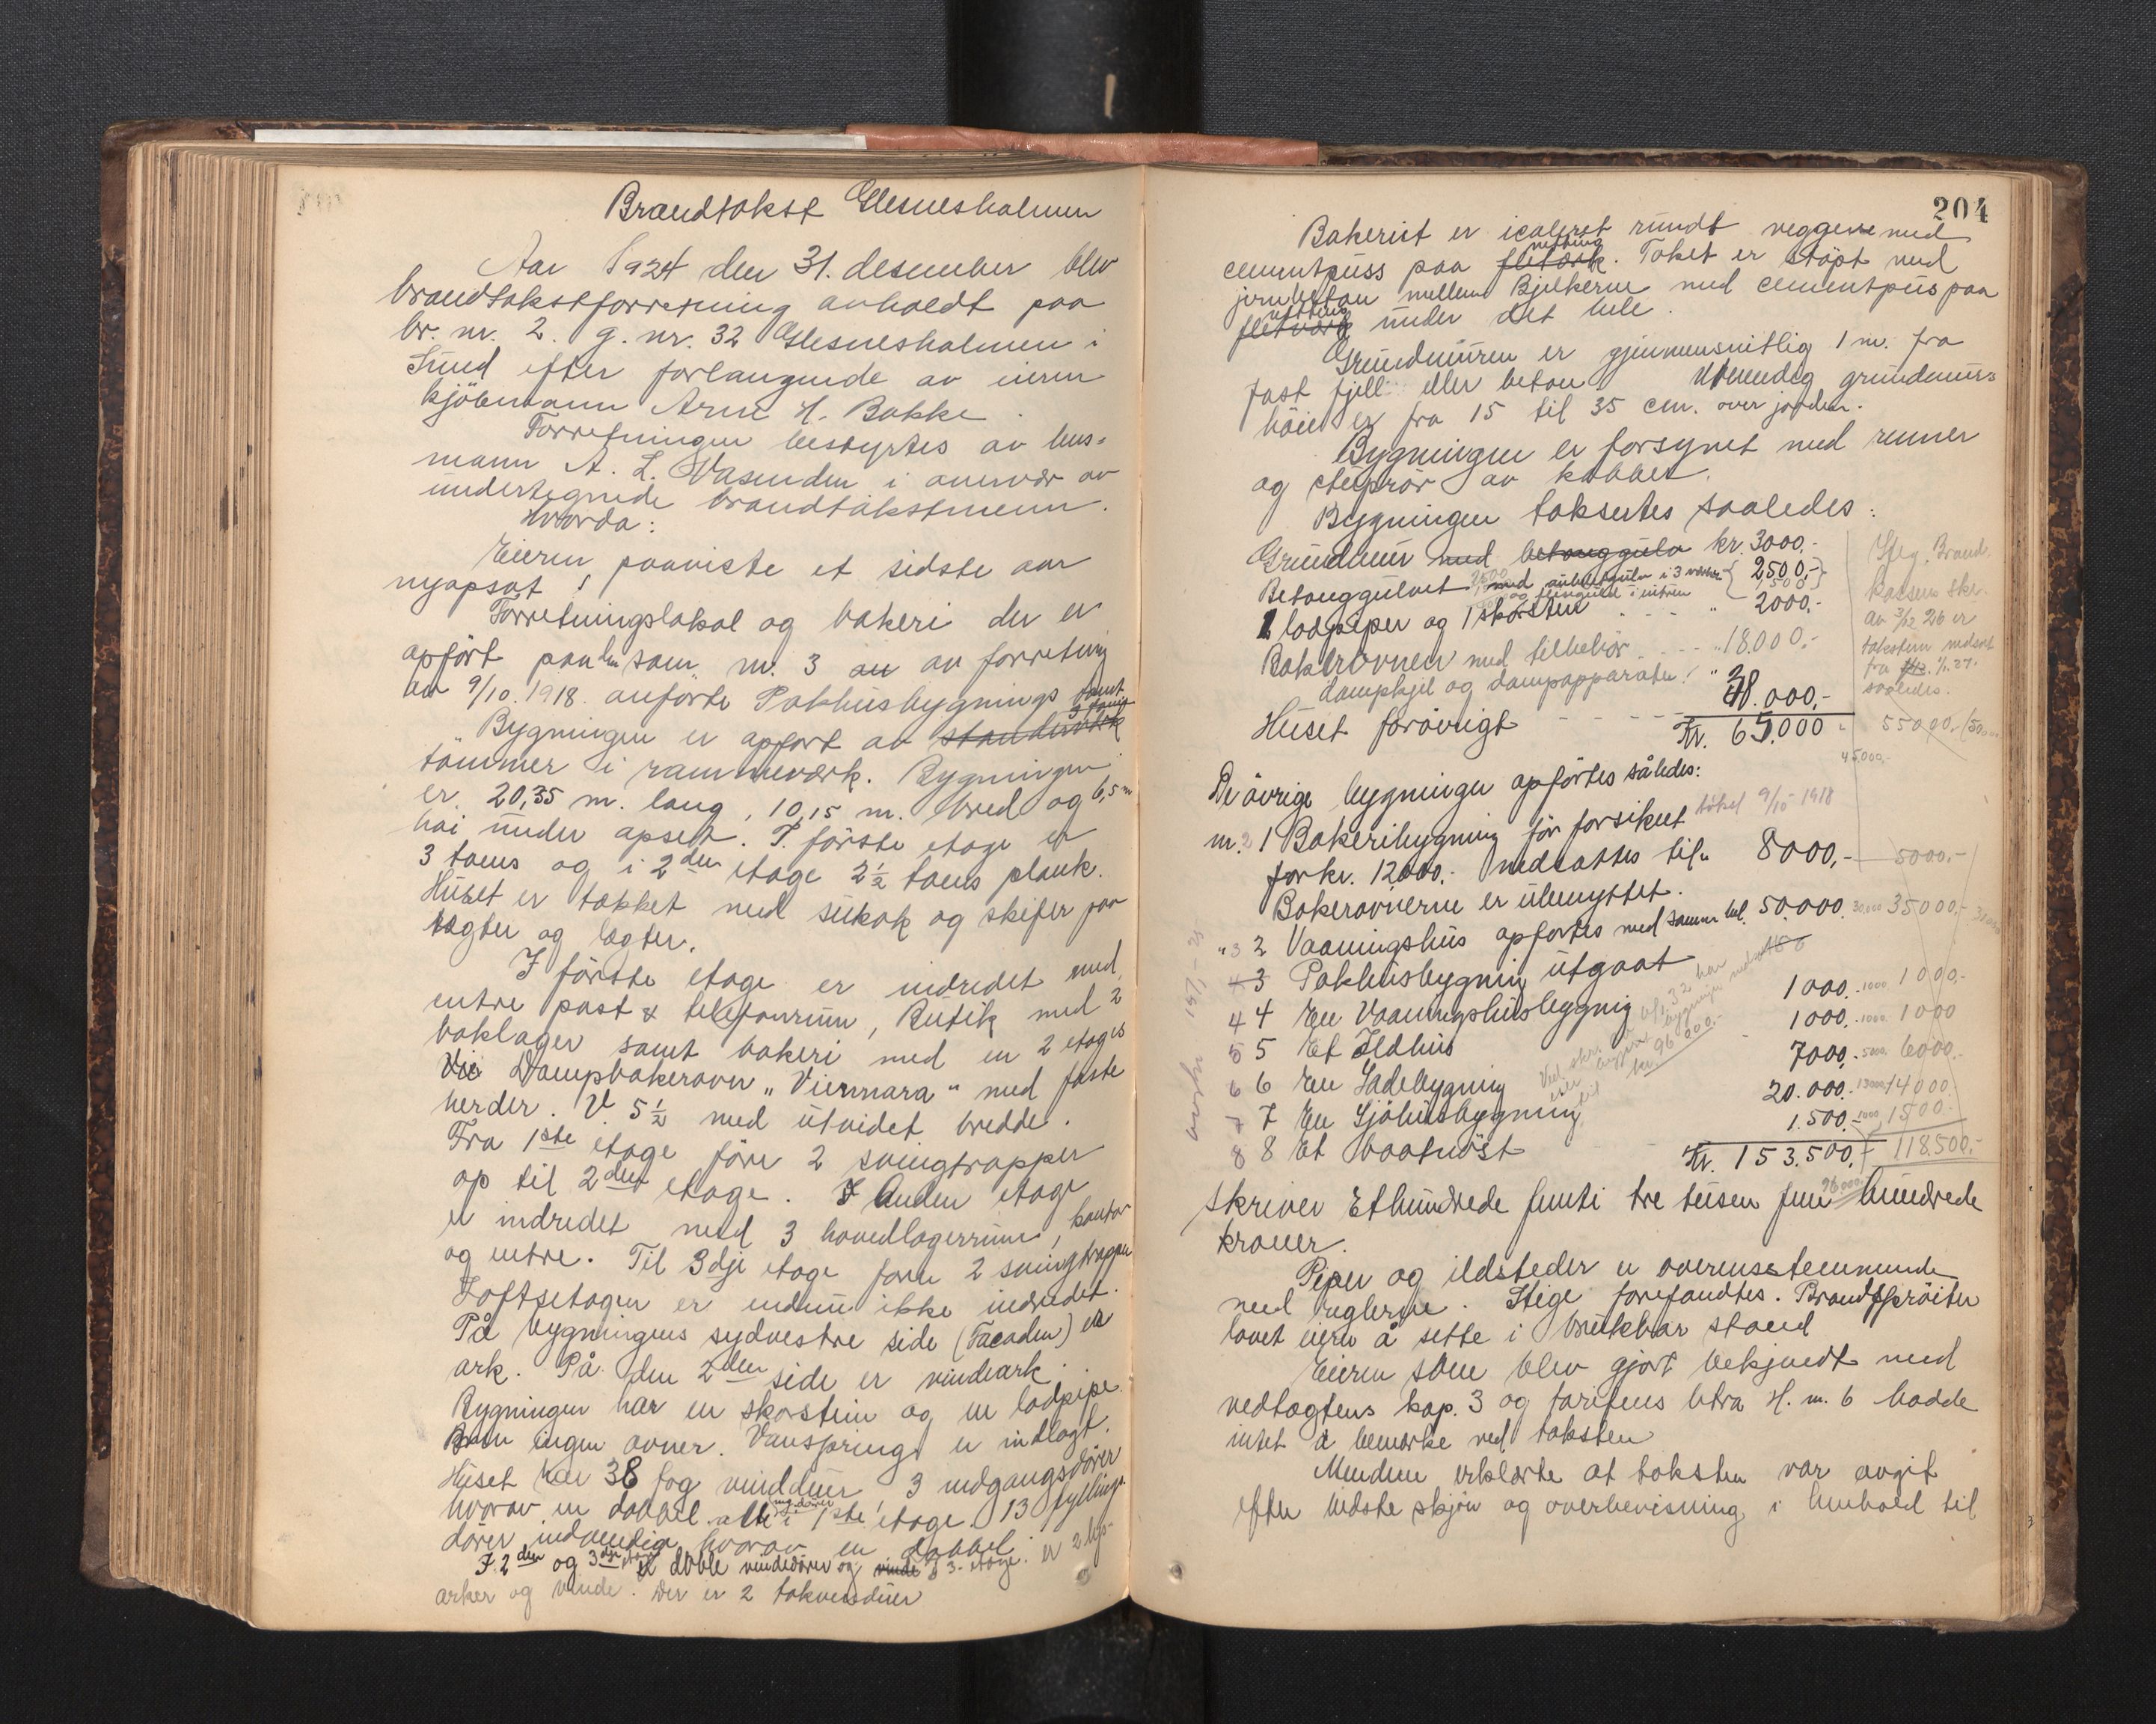 Brandtakst Glesnesholmen
Aar 1924 den 31. desember blev
brandtakstforretning avholdt paa
br. nr. 2. g. nr. 32 Glesnesholmen i
Sund efter forlangende av eieren
kjöbmann Arne H. Bakke.
Forretningen bestyrtes av lens-
mann A. L. Vasenden i overvær av
undertegnede brandtakstmenn.
Hvorda:
Eieren paaviste et sidste aar
nyopsat
Forretningslokal og bakeri der er
opfört paa den som nr. 3 av forretning
av 9/10. 1918. anförte Pakhusbygnings tomt
Bygningen er opfört av standerværk 3 toms
tömmer i rammeværk. Bygningen
er 20,35 m. lang, 10,15 m. bred og 6,5 m
høi under opsett. I förste etage er
3 toms og i 2den etage 2½ toms plank.
Huset er tækket med sutak og skifer paa
tægter og lægter.
I förste etage er indredet med
entre post & telefonrum, Butik med 2
baklager samt bakeri med en 2 etages
Dampbakerovn "Viennara" med faste
herder. V. 5½ med utvidet bredde.
Fra 1ste etage förer 2 svingtrapper
op til 2den etage. I Anden etage
er indredet med 3 hovedlagerrum, kontor
og entre. Til 3dje etage förer 2 svingtrapper
Loftsetagen er endnu ikke indredet.
På bygningens sydvestre side (Facaden) er
ark. På den 2den side er vindeark.
Bygningen har en skorstein og en lodpipe.
Men ingen ovner. Vanspring er indlagt.
Huset har 38 fag vinduer 3 indgangsdörer
hvorav en dobbel alle i 1ste etage. 13 fyllings-
dörer indvendig hvorav en dobbel
I 2den og 3dje etage er doble vindedörer og vinde i 3. etage. er 2 lys-
arker og vinde. Der er 2 takvinduer
204
Bakeriet er isoleret rundt veggene med
cementpuss paa fletverk netting. Taket er støpt med
jernbeton mellem Bjelkerne med cementpus paa
fletverk netting under det hele.
Grundmuren er gjennemsnitlig 1 m. fra
fast fjell eller beton Utvendig grundmurs
höide er fra 15 til 35 cm. over jorden.
Bygningen er forsynet med renner
og stuprör av kobber.
Bygningen taksertes saaledes:
Grundmur med betonggulv kr. 3000.-
Betonggulvet 2500 " 2500,-
2 lodpiper og 1 skorsten " 2000.-
Bakerovnen med tilbehör " 18.000.-
dampkjel og dampapparater.
Huset forövrigt 38.000,-
Kr. 65.000.-
Skr. Brand
kassens skr.
av 3/12 26 er
taksten nedsat
fra 1/1. 27.
saaledes.
55000,-
45000,-
De övrige bygninger opförtes således:
nr. 2 1 Bakeribygning för forsikret takst 9/10 1918
for kr. 12000.- nedsattes til " 8000,- 5000.-
Bakerovnerne er ubenyttet.
" 3 2 Vaaningshus opfortes med samme bel. 50.000. 30.000 35000,-
3 Pakhusbygning utgaat
4 4 En Vaaningshusbygning 1000.- 1000 1000.-
5 5 Et Ildhus 1000.- 1000. 1000
6 6 En Ladebygning 7000.- 5000. 6000.-
7 7 En Sjöhusbygning 20.000.- 13000 14000.
8 8 Et baatnöst 1.500.- 1000, 1500.-
Kr. 153.500,- 118500.-
96000
skriver Ethundrede femti tre tusen fem hundrede
kroner.
Piper og ildsteder er overensstemmende
med reglerne. Stige forefandtes. Brandspröiter
lovet eieren å sette i brukbar stand
Eieren som blev gjort bekjendt med
vedtægtens kap. 3 og tariffens litra H. nr. 6 hadde
intet å bemerke ved taksten
Mendene erklærte at taksten var avgit
efter bedste skjön og overbevisning i henhold til